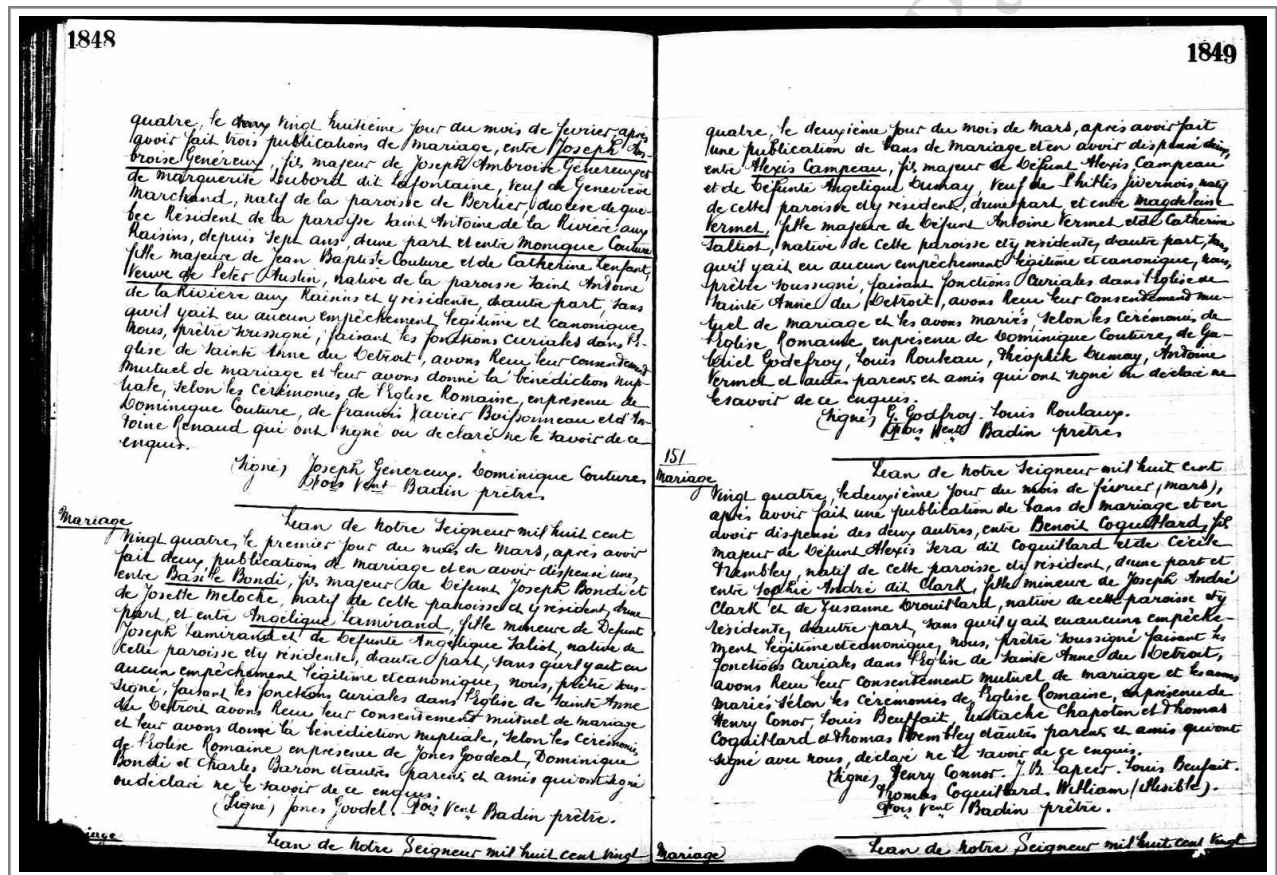 1848
quatre, le vingt huitième jour du mois de fevrier, après
avoir fait trois publications de mariage, entre Joseph Am-
broise Généreux, fils majeur de Joseph Ambroise Généreux et
de Marguerite Dubord dit Lafontaine, veuf de Geneviève
Marchand, natif de la paroisse de Bertier, diocèse de Que-
bec Résident de la paroisse Saint Antoine de la Rivière aux
Raisins, depuis sept ans, d'une part et entre Monique Couture
fille majeure de Jean Baptiste Couture et de Catherine Lenfant,
Veuve de Peter Austin, native de la paroisse Saint Antoine
de la Rivière aux Raisins et y résidente, d'autre part, sans
qu'il y ait eu aucun empêchement légitime et canonique,
nous, prêtre soussigné, faisant les fonctions curiales dans l'E-
glise de Sainte Anne du Detroit, avons Reçu leur consentement
mutuel de mariage et leur avons donné la bénédiction nup-
tiale, selon les cérémonies de l'Eglise Romaine, en presence de
Dominique Couture, de francois Xavier Boissonneau et d'An-
toine Renaud qui ont signé ou declaré ne le savoir de ce
enquis.
(Signés) Joseph Généreux. Dominique Couture
frois Vent Badin prêtre
Mariage
L'an de notre Seigneur mil huit cent
vingt quatre, le premier jour du mois de Mars, après avoir
fait deux publications de mariage et en avoir dispensé une,
entre Basile Bondi, fils majeur de Défunt Joseph Bondi et
de Josette Meloche, natif de cette paroisse et y résident, d'une
part, et entre Angélique Lamirand, fille mineure de Defunt
Joseph Lamirand et de Défunte Angélique Saliot, native de
cette paroisse et y résidente, d'autre part, sans qu'il y ait eu
aucun empêchement légitime et canonique, nous, prêtre sous-
signé, faisant les fonctions curiales dans l'Eglise de Sainte Anne
du Detroit avons Reçu leur consentement mutuel de mariage
et leur avons donné la bénédiction nuptiale, selon les cérémonies
de l'Eglise Romaine en presence de Jones Goodeal, Dominique
Bondi et Charles Baron et autres parents et amis qui ont signé
ou déclaré ne le savoir de ce enquis.
(Signé) Jones Goodel. frois Vent Badin prêtre.
L'an de notre Seigneur mil huit cent vingt
1849
quatre, le deuxième jour du mois de Mars, après avoir fait
une publication de bans de mariage et en avoir dispensé
entre Alexis Campeau, fils majeur de Défunt Alexis Campeau
et de Défunte Angelique Dumay, veuf de Phillis Livernois, natif
de cette paroisse et y resident, d'une part, et entre Magdeleine
Vermet, fille majeure de Défunt Antoine Vermet et de Catherine
Salliot, native de cette paroisse et y residente, d'autre part, sans
qu'il y ait eu aucun empêchement légitime et canonique, nous,
prêtre soussigné, faisant fonctions curiales dans l'Eglise de
Sainte Anne du Detroit, avons Reçu leur consentement mu-
tuel de mariage et les avons mariés, selon les cérémonies de
l'Eglise Romaine, en presence de Dominique Couture, de Ga-
briel Godefroy, Louis Rouleau, Théophile Dumay, Antoine
Vermet et autres parents et amis qui ont signé ou déclaré ne
le savoir de ce enquis.
(Signés) G. Godfroy. Louis Roulaux.
frois Vent Badin prêtre
151
Mariage
L'an de notre Seigneur mil huit cent
vingt quatre, le deuxième jour du mois de février (mars),
après avoir fait une publication de bans de mariage et en
avoir dispensé des deux autres, entre Benoit Coquillard, fils
majeur de Défunt Alexis Sera dit Coquillard et de Cécile
Trembley, natif de cette paroisse et y résident, d'une part et
entre Sophie André dit Clark, fille mineure de Joseph André
Clark et de Suzanne Drouillard, native de cette paroisse et y
residente, d'autre part, sans qu'il y ait eu aucuns empêche-
ment légitime et canonique, nous, prêtre soussigné faisant les
fonctions curiales dans l'Eglise de Sainte Anne du Detroit,
avons Reçu leur consentement mutuel de mariage et les avons
mariés selon les cérémonies de l'Eglise Romaine, en présence de
Henry Conor, Louis Beuffait, Eustache Chapoton et Thomas
Coquillard et Thomas Trembley et autres parents et amis qui ont
signé avec nous, déclaré ne le savoir de ce enquis.
(Signés) Henry Connor. J. B. Lapeer. Louis Beufait.
Thomas Coquillard. William (illisible).
frois Vent Badin prêtre.
Mariage
L'an de notre Seigneur mil huit cent vingt